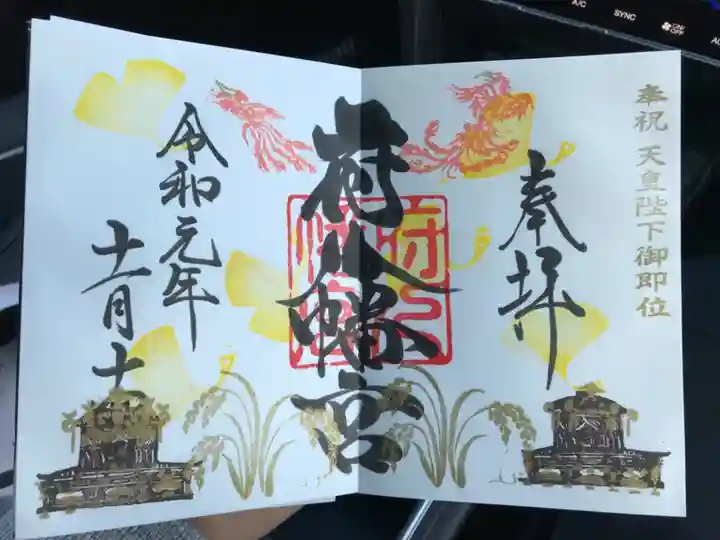 A/C
SYNC
ON/
OFF
奉祝 天皇陛下御即位
奉拝
府八幡宮
令和元年
十一月十